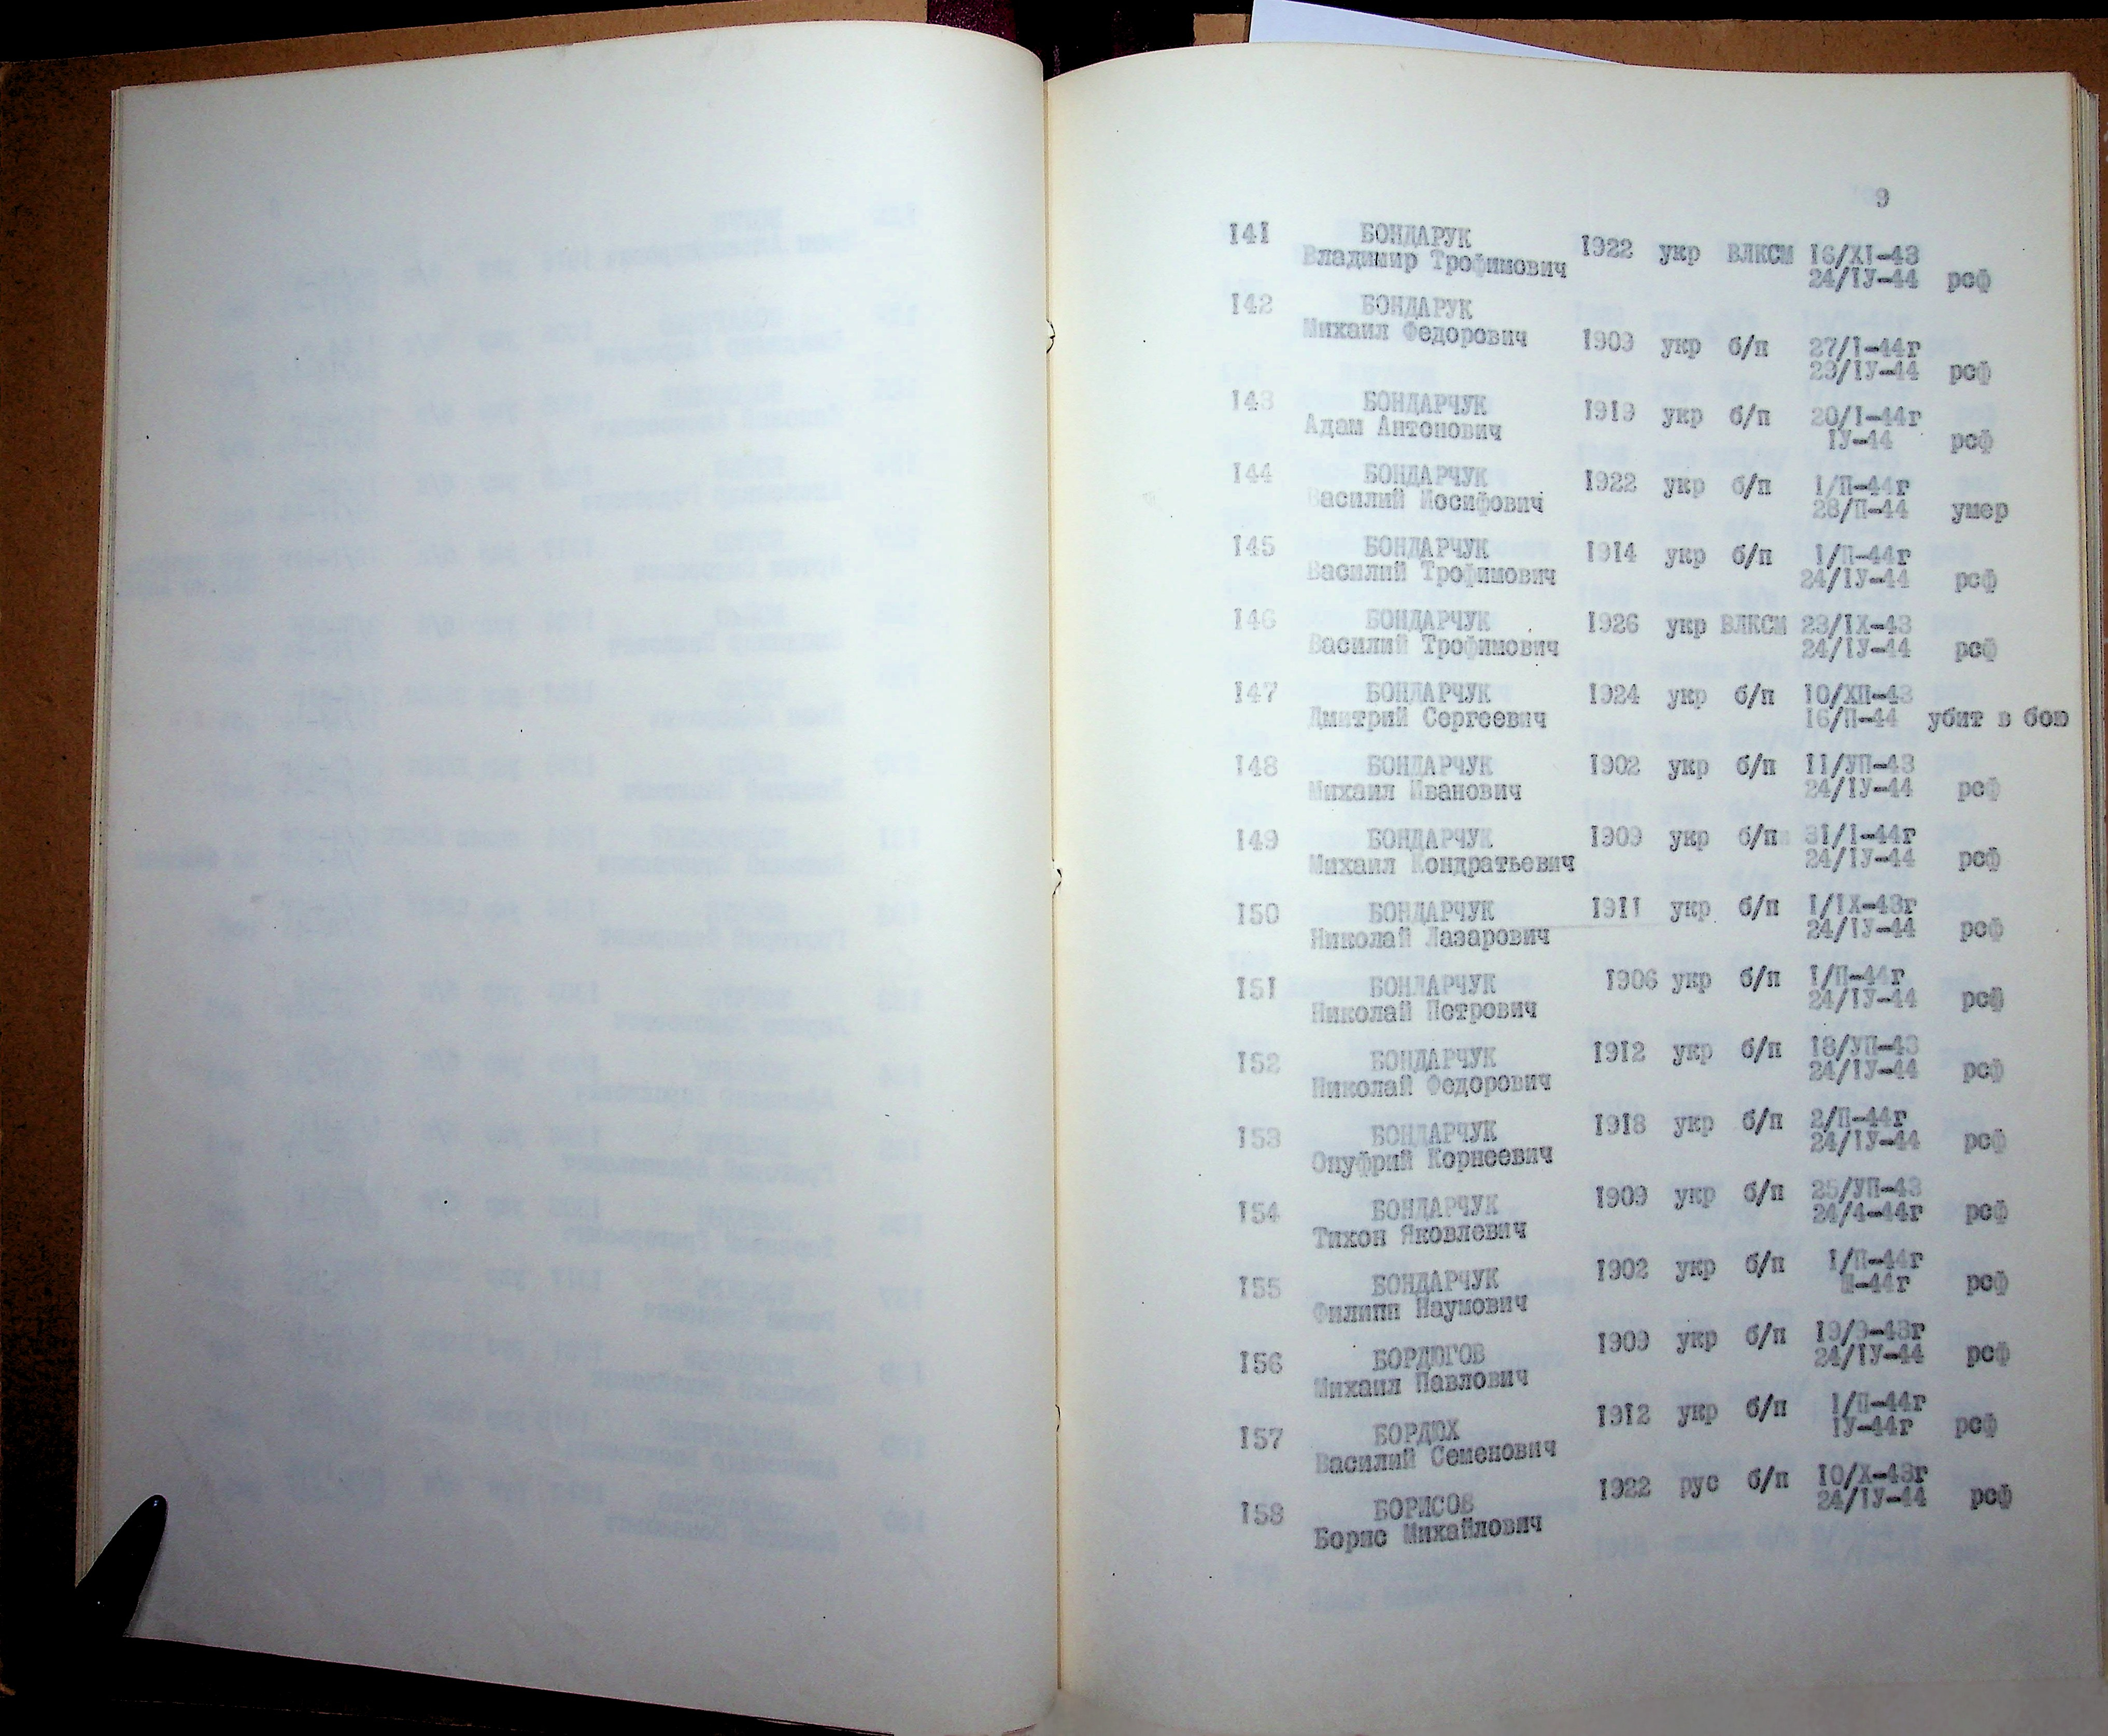 9
141 БОНДАРУК
Владимир Трофимович 1922 укр ВЛКСМ 16/XI-43
24/IУ-44 рсф
142 БОНДАРУК
Михаил Федорович 1909 укр б/п 27/I-44г
23/IУ-44 рсф
143 БОНДАРЧУК 1919 укр б/п 20/I-44г
Адам Антонович IУ-44 рсф
144 БОНДАРЧУК 1922 укр б/п 1/П-44г
Василий Иосифович 28/П-44 умер
145 БОНДАРЧУК 1914 укр б/п 1/П-44г
Василий Трофимович 24/IУ-44 рсф
146 БОНДАРЧУК 1926 укр ВЛКСМ 23/IX-43
Василий Трофимович 24/IУ-44 рсф
147 БОНДАРЧУК 1924 укр б/п 10/ХП-43
Дмитрий Сергеевич 16/П-44 убит в бою
148 БОНДАРЧУК 1902 укр б/п 11/УП-43
Михаил Иванович 24/IУ-44 рсф
149 БОНДАРЧУК 1909 укр б/п 31/I-44г
Михаил Кондратьевич 24/IУ-44 рсф
150 БОНДАРЧУК 1911 укр б/п 1/IX-43г
Николай Лазарович 24/IУ-44 рсф
151 БОНДАРЧУК 1906 укр б/п 1/П-44г
Николай Петрович 24/IУ-44 рсф
152 БОНДАРЧУК 1912 укр б/п 18/УП-43
Николай Федорович 24/IУ-44 рсф
153 БОНДАРЧУК 1918 укр б/п 2/П-44г
Онуфрий Корнеевич 24/IУ-44 рсф
154 БОНДАРЧУК 1909 укр б/п 25/УП-43
Тихон Яковлевич 24/4-44г рсф
155 БОНДАРЧУК 1902 укр б/п 1/П-44г
Филипп Наумович Ш-44г рсф
156 БОРДЮГОВ 1909 укр б/п 19/9-43г
Михаил Павлович 24/IУ-44 рсф
157 БОРДЮХ 1912 укр б/п 1/П-44г
Василий Семенович IУ-44г рсф
158 БОРИСОВ 1922 рус б/п 10/X-43г
Борис Михайлович 24/IУ-44 рсф